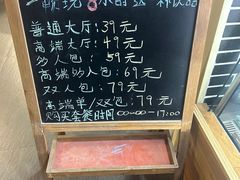 普通大厅:39元
高端大厅:49元
多人包:59元
高端多人包:69元
双人包:79元
高端单/双包:79元
购买套餐时间 00-17:00